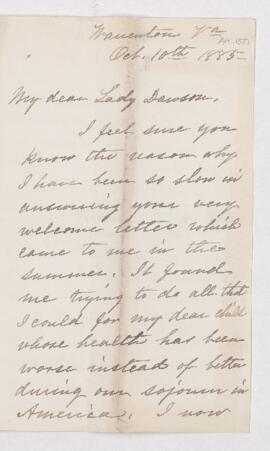 Warrenton Va
Oct. 10th 1885
My dear Lady Dawson,
I feel sure you
know the reason why
I have been so slow in
answering your very
welcome letter which
came to me in the
summer. It found
me trying to do all that
I could for my dear child
whose health has been
worse instead of better
during our sojourn in
America. I now